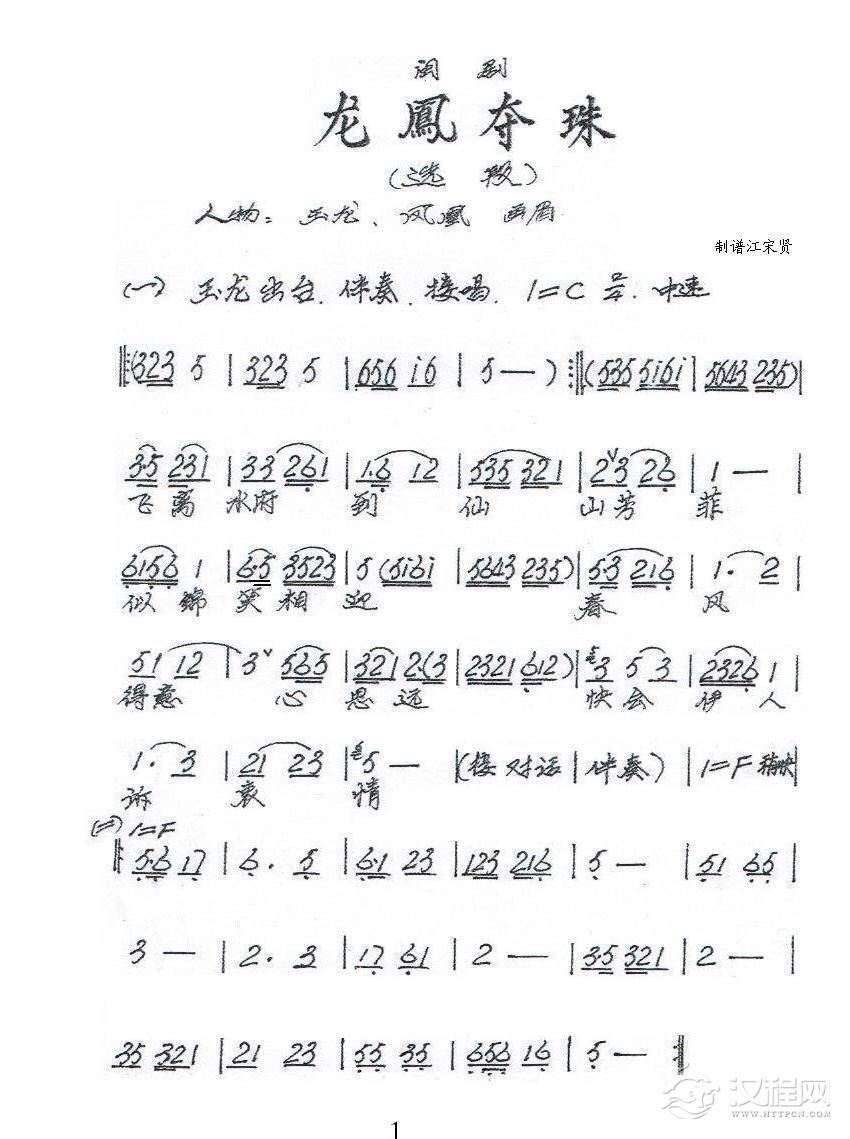 闽剧
龙鳳夺珠
(选段)
人物：玉龙、凤凰 画眉
制谱江宋贤
(一) 玉龙出台．伴奏．接唱．1=C 2/4．中速
(323 5 | 323 5 | 656 i6 | 5 — ) (535 5i6i | 5643 235) |
3·5 231 | 33 261 | 1·6 12 | 535 321 | 2ˇ3 26 | 1 — |
飞离 水府 到 仙 山芳 菲
6156 1 | 6·5 3523 | 5 (5i6i | 5643 235) | 5·3 216 | 1· 2 |
似锦 笑相迎 春 风
51 12 | 3ˇ 565 | 321 2·(3 | 2321 612) | 3 5 3 | 2326 1 |
得意 心 思 远 快会 伊人
1· 3 | 21 23 | 5 — | (接对话 | 伴奏) | 1=F 稍快 |
诉 衷 情
(二) 1=F
5·6 17 | 6· 5 | 6·1 23 | 123 216 | 5 — | 51 65 |
3 — | 2· 3 | 17 61 | 2 — | 3·5 321 | 2 — |
35 321 | 21 23 | 55 35 | 656 16 | 5 —
汉程网
WWW.HTTPCN.COM
1